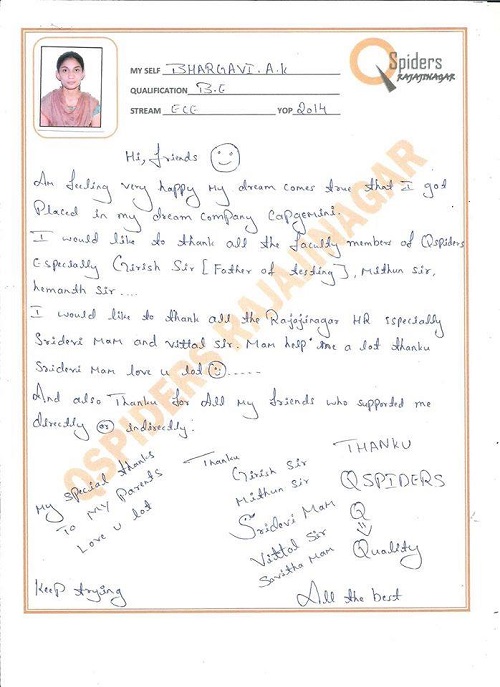 QSpiders
RAJAJINAGAR
MY SELF BHARGAVI.A.K
QUALIFICATION B.E
STREAM ECE YOP 2014
Hi, friends
Am feeling very happy My dream comes true that I got
Placed in my dream company Capgemini.
I would like to thank all the faculty members of Qspiders
Especially Girish Sir [Father of testing], Mithun Sir,
hemanth Sir ....
I would like to thank all the Rajajinagar HR Especially
Sridevi Mam and Vittal Sir. Mam help me a lot thanku
Sridevi Mam love u lot .....
And also Thanku for All My friends who supported me
directly or indirectly.
QSPIDERS RAJAJINAGAR
My special thanks
To My Parents
Love u lot
Thanku
Girish Sir
Mithun Sir
Sridevi Mam
Vittal Sir
Savitha Mam
THANKU
QSPIDERS
Q
Quality
Keep trying
All the best